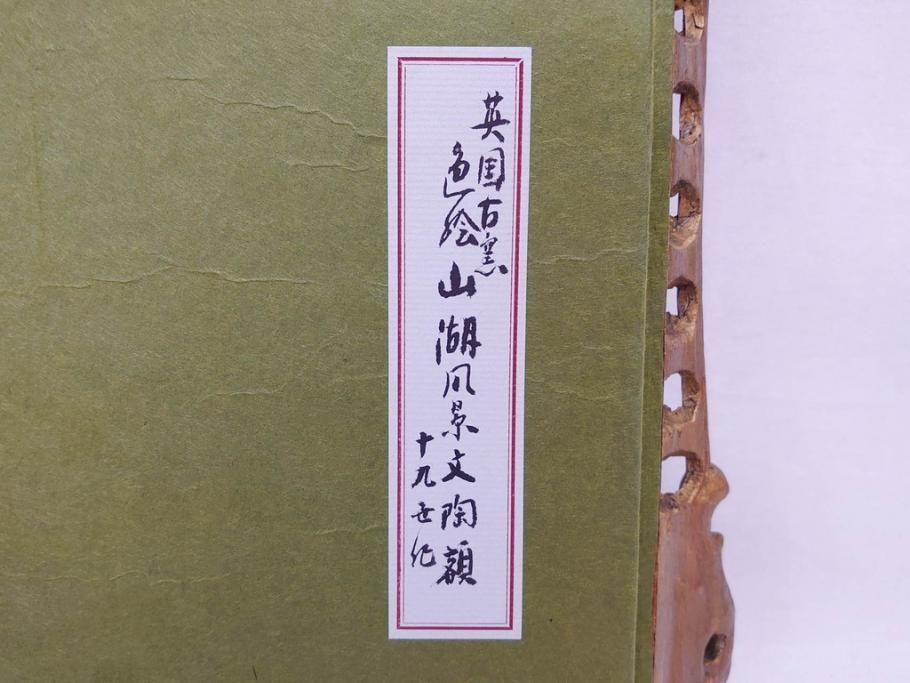 英国古窯
色絵山湖风景文陶額
十九世紀